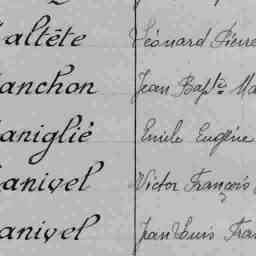 altête Léonard Pierre
anchon Jean Bapte Ma
aniglié Emile Eugène
anivel Victor François
anivel Jean Louis Fran